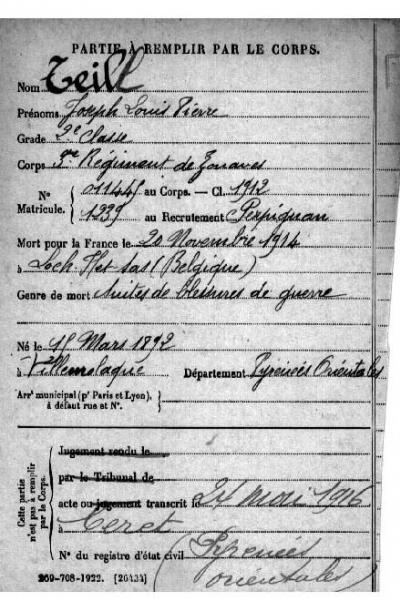 PARTIE À REMPLIR PAR LE CORPS.
Nom Teill
Prénoms Joseph Louis Pierre
Grade 2e Classe
Corps Régiment de Zouaves
N° Matricule. { 01144 au Corps. — Cl. 1912
1239 au Recrutement Perpignan
Mort pour la France le 20 Novembre 1914
à (Belgique)
Genre de mort Suites de blessures de guerre
Né le Mars 1892
à Villemolaque Département Pyrénées Orientales
Arrt municipal (pr Paris et Lyon), à défaut rue et N°.
Cette partie n'est pas à remplir par le Corps.
Jugement rendu le
par le Tribunal de
acte ou jugement transcrit le 24 mai 1916
à Ceret
N° du registre d'état civil (Pyrénées
orientales)
269-708-1922. [26434]